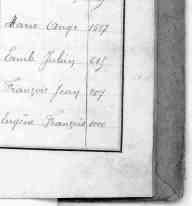 Marie Ange 1557
Emile Julien 685
François Jean 707
Eugène François 1000